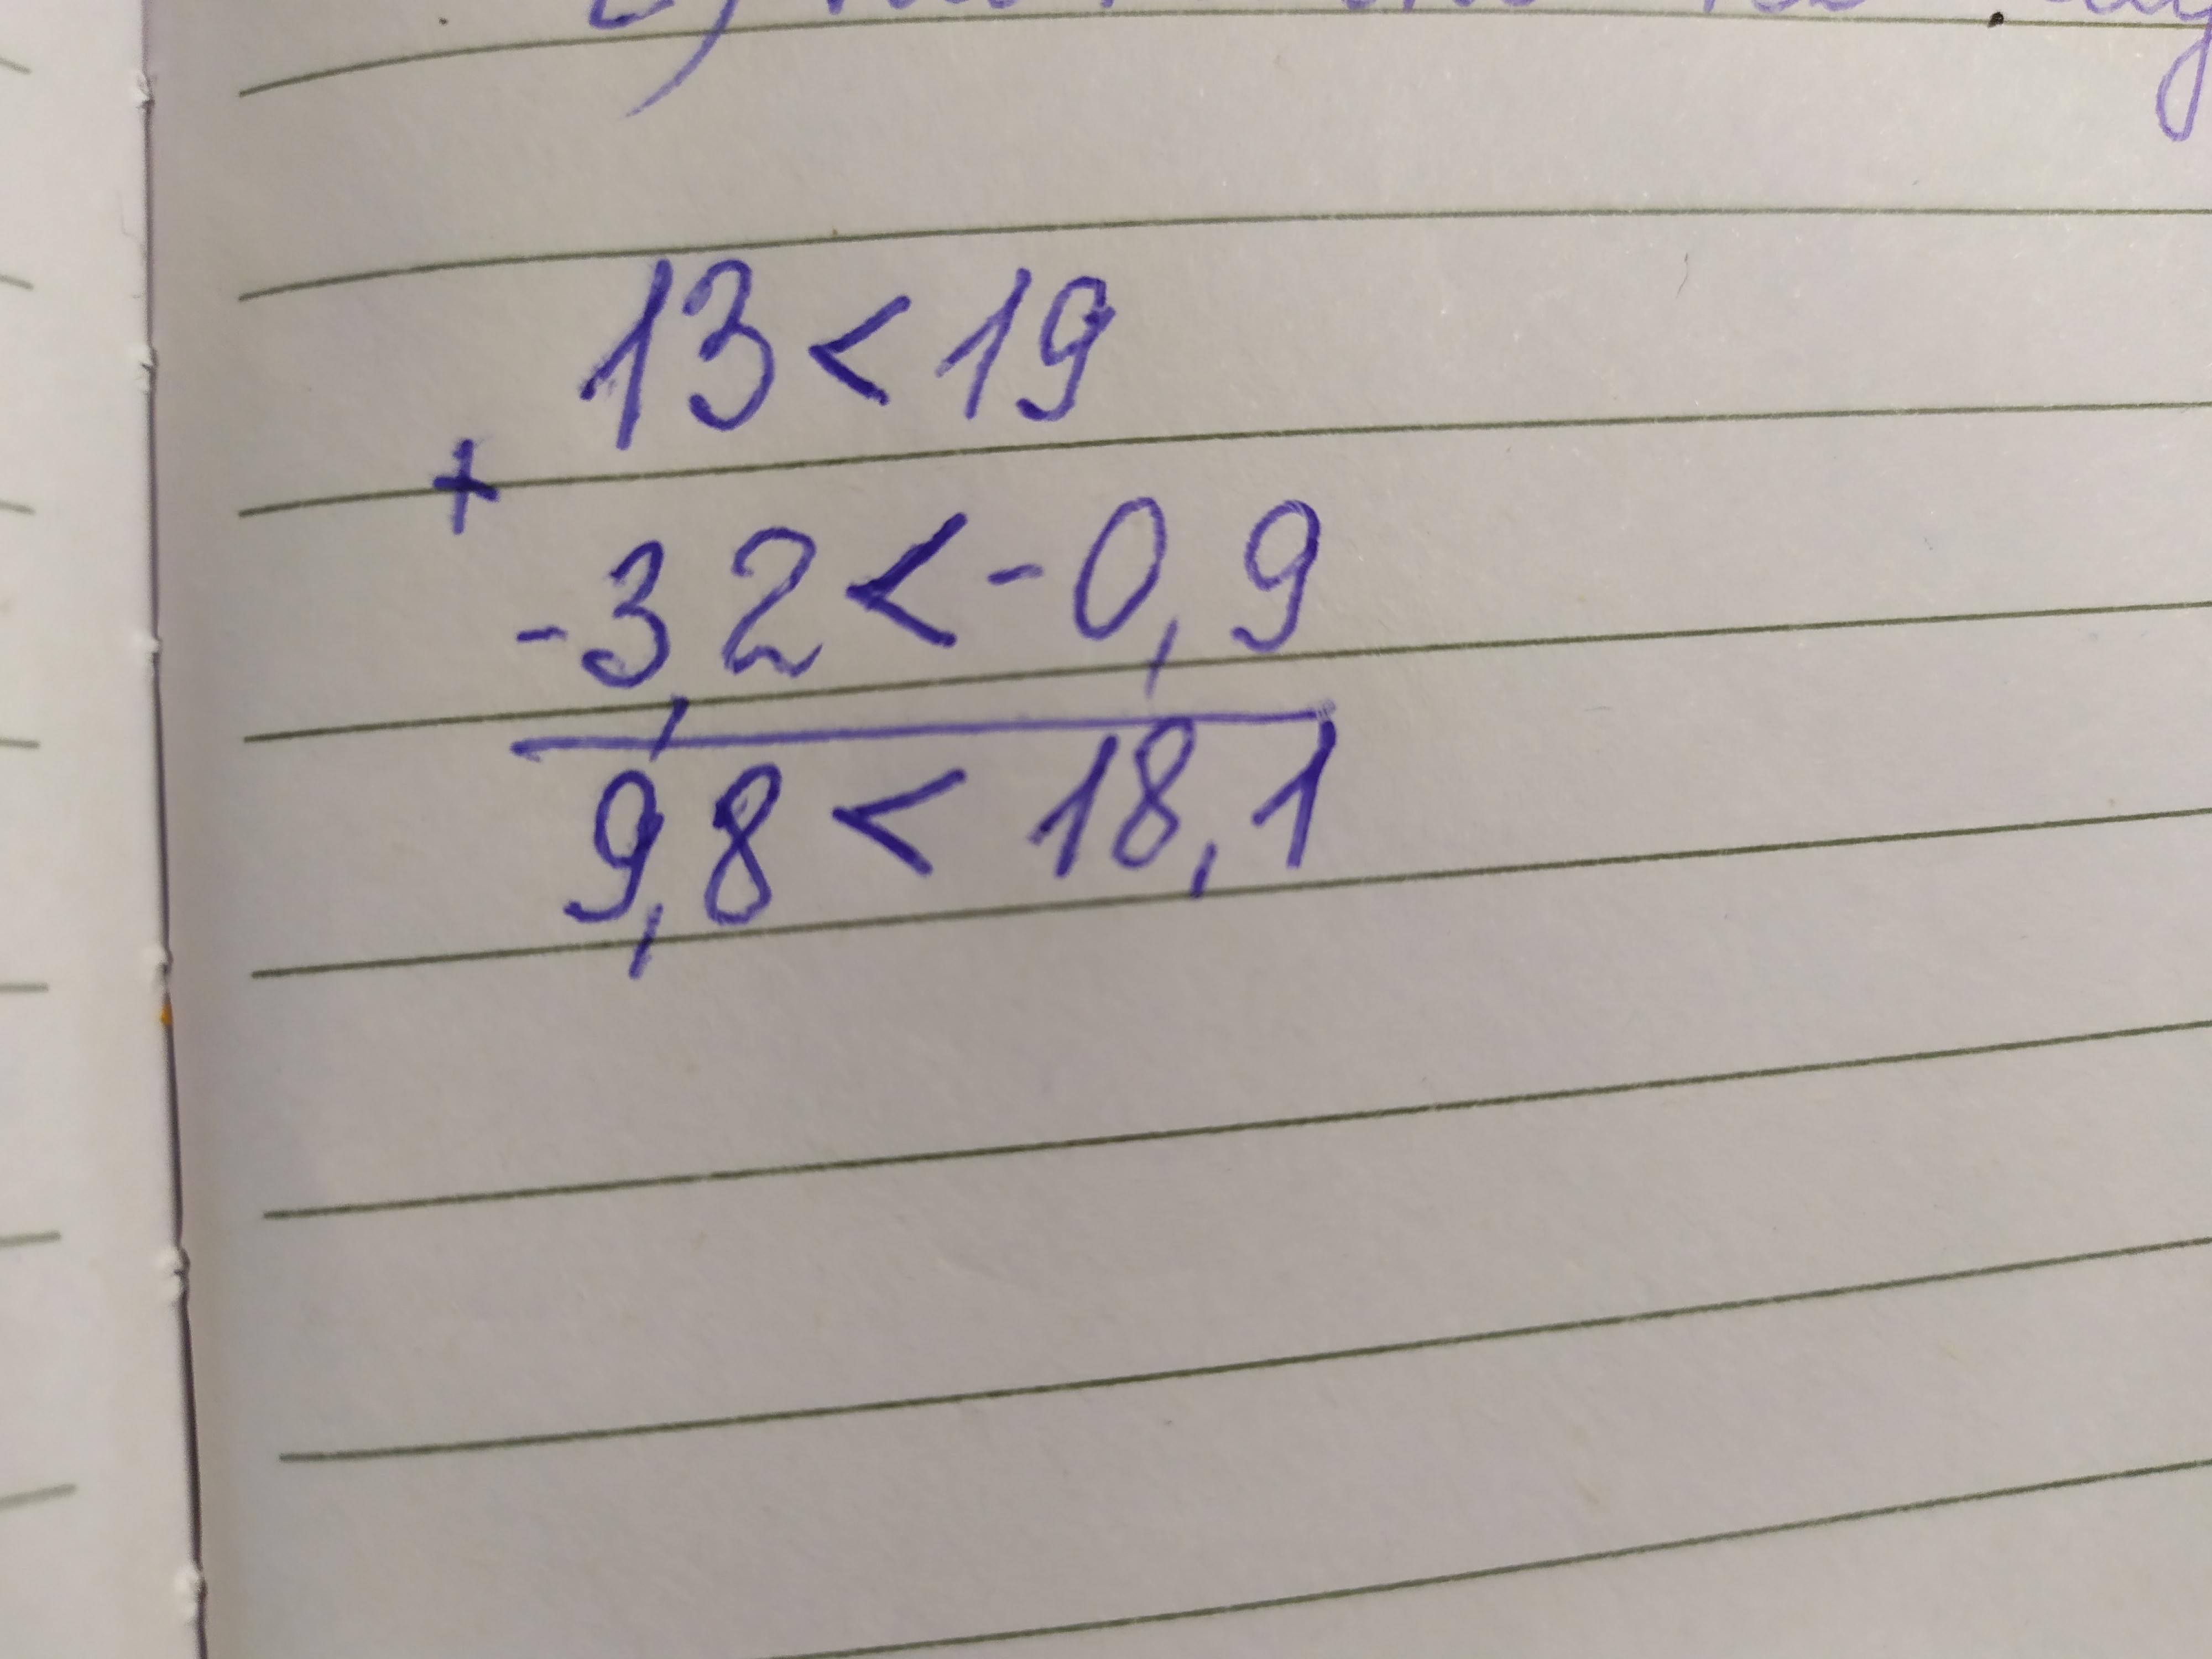 2)
13 < 19
+
-3,2 < -0,9
9,8 < 18,1